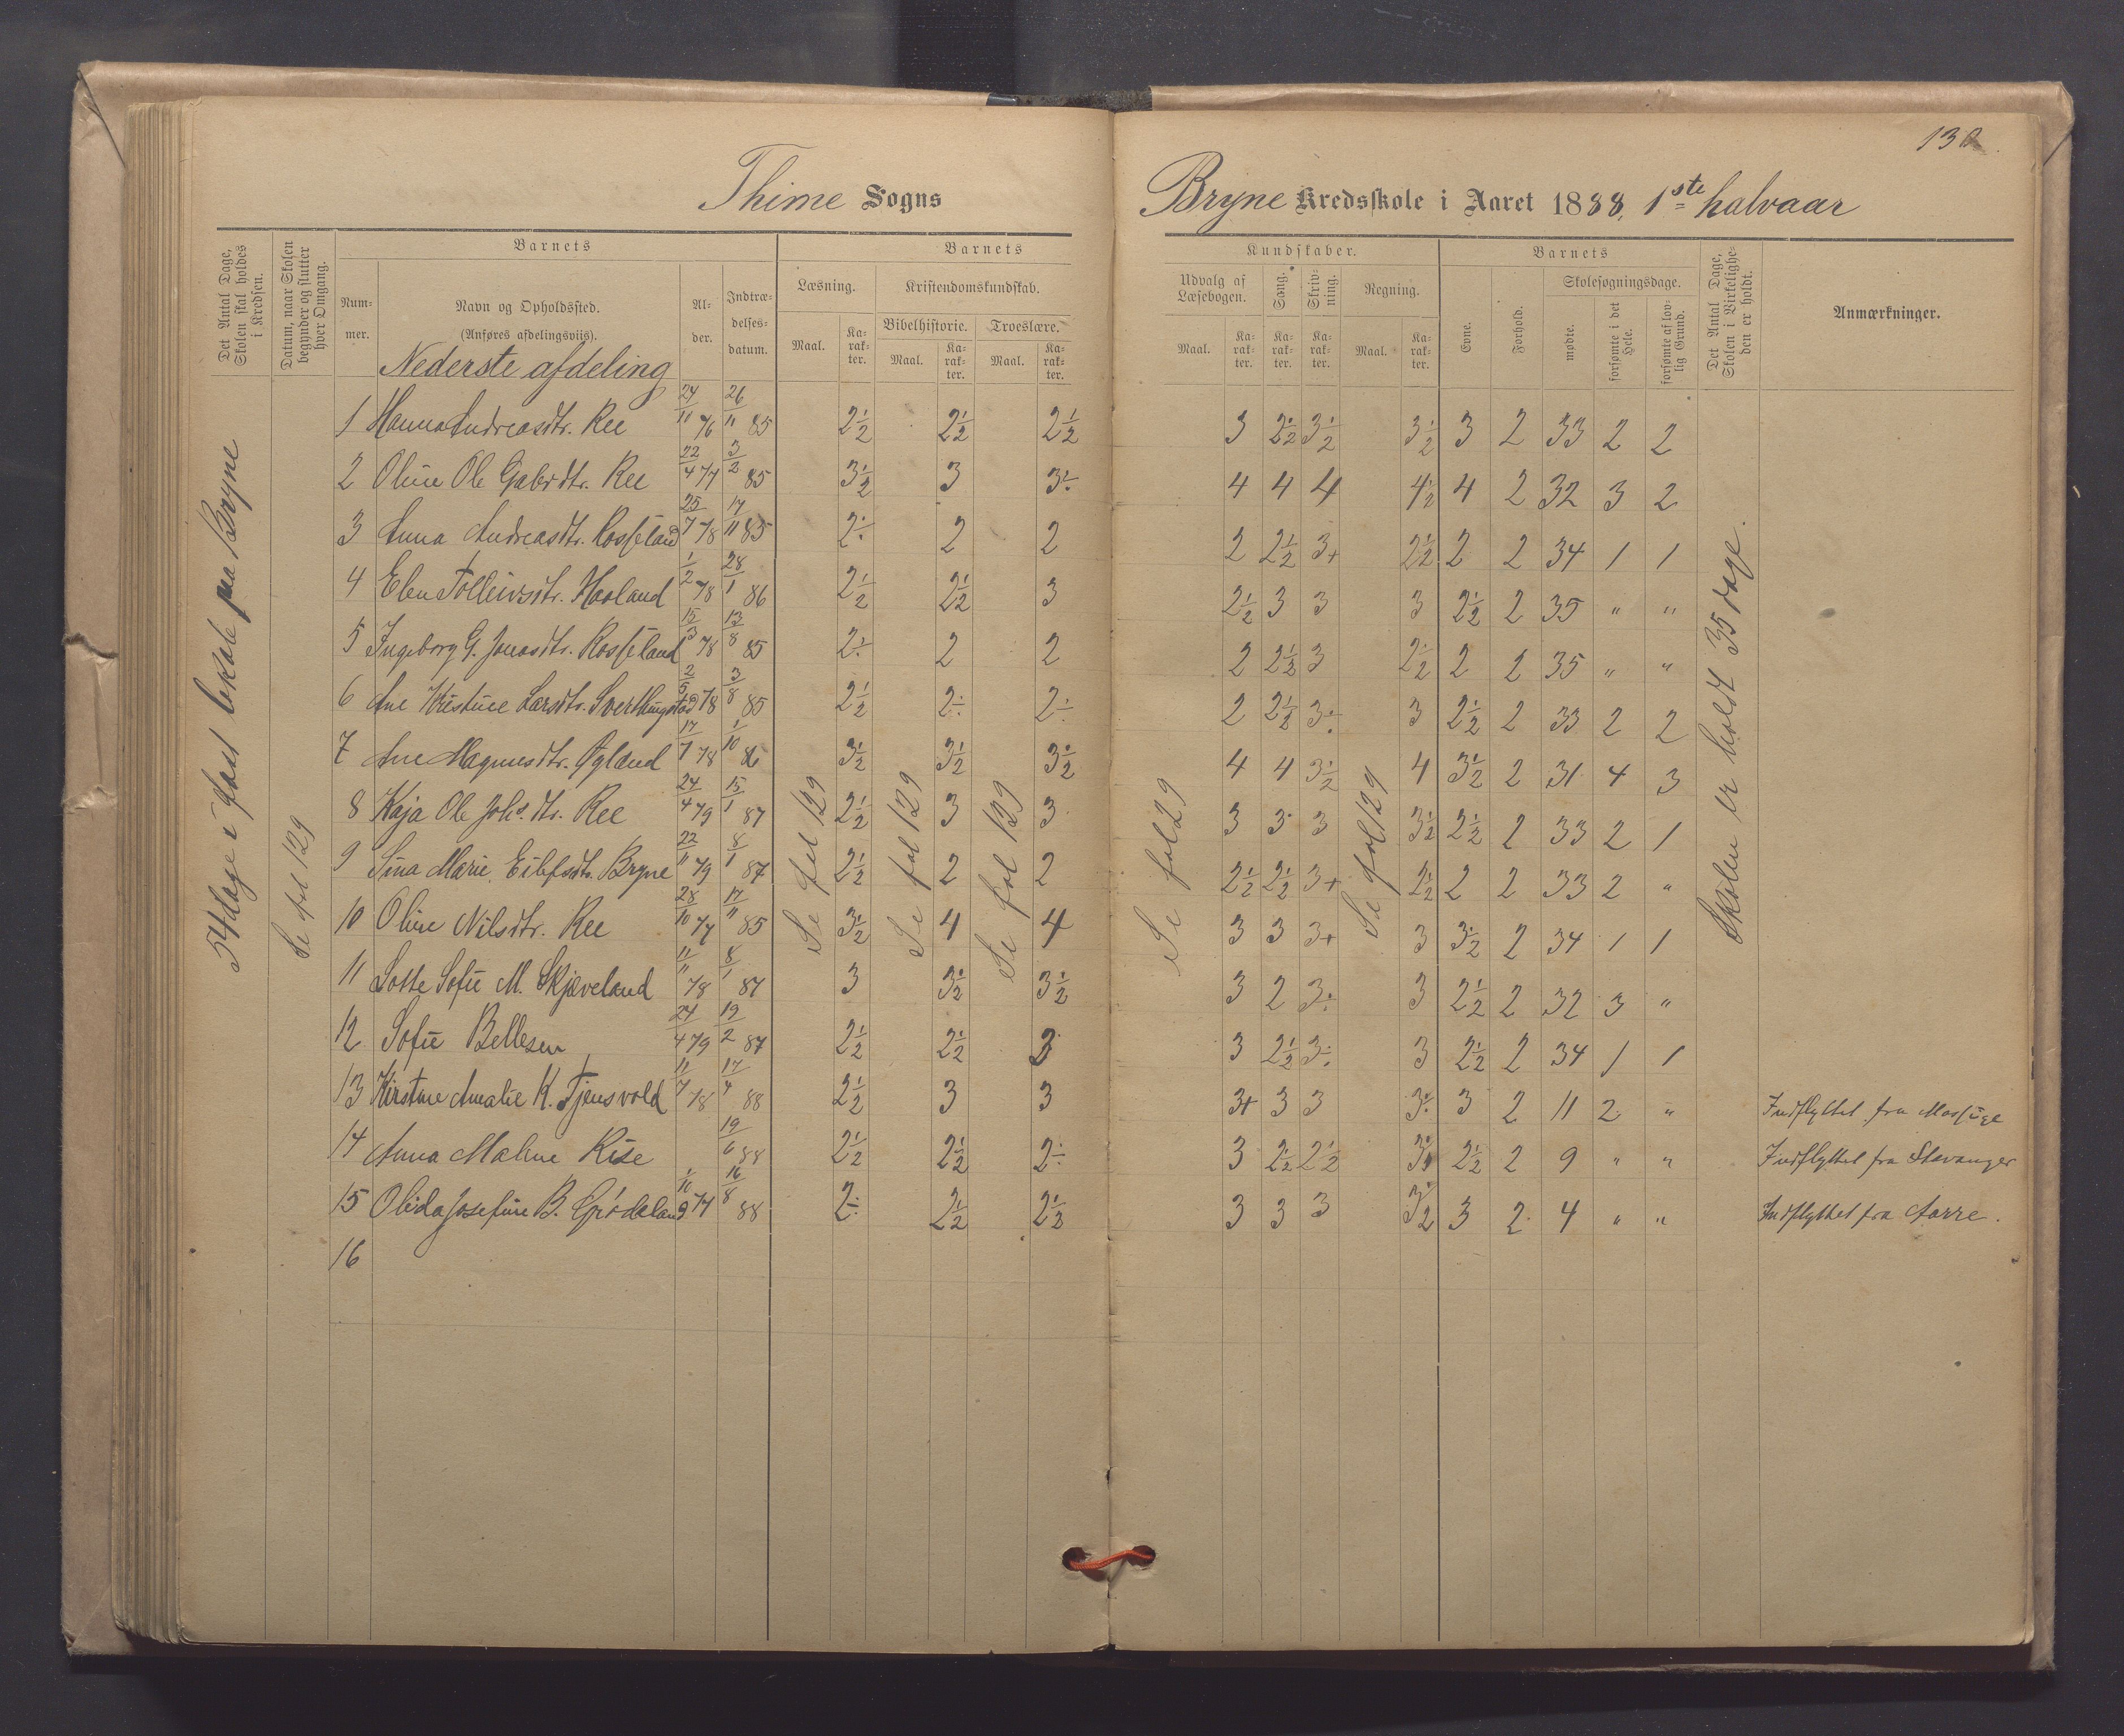 130
Thime Sogns Bryne Kredsskole i Aaret 1888, 1ste halvaar
Det Antal Dage, Skolen skal holdes i Kredsen.
Datum, naar Skolen begynder og slutter hver Omgang.
Barnets
Nummer.
Navn og Opholdssted.
(Anføres afdelingsviis).
Alder.
Indtrædelsesdatum.
Barnets
Læsning.
Kristendomskundskab.
Bibelhistorie. Troeslære.
Maal. Karakter. Maal. Karakter. Maal. Karakter.
Kundskaber.
Udvalg af Læsebogen.
Sang.
Skrivning.
Regning.
Maal. Karakter. Karakter. Karakter. Maal. Karakter.
Barnets
Evne.
Forhold.
Skolesøgningsdage.
mødte.
forsømte i det Hele.
forsømte af lovlig Grund.
Det Antal Dage, Skolen i Virkeligheden er holdt.
Anmærkninger.
Nederste afdeling
54 dage i fast lokale paa Bryne
Se fol 129
Se fol 129
Se fol 129
Se fol 129
Se fol 29
Se fol 129
Skolen er holdt 35 dage.
1 Hanna Andreasdtr. Ree 24/11 76 26/11 85 2½ 2½ 2½ 3 2½ 3½ 3½ 3 2 33 2 2
2 Oline Ole Gabrdtr. Ree 22/4 77 3/2 85 3½ 3 3÷ 4 4 4 4½ 4 2 32 3 2
3 Anna Andreasdtr. Rosseland 25/7 78 17/11 85 2÷ 2 2 2 2½ 3+ 2½ 2 2 34 1 1
4 Elen Tolleivsdtr. Haaland 1/2 78 28/1 86 2½ 2½ 3 2½ 3 3 3 2½ 2 35 " "
5 Ingeborg G. Jonasdtr. Rosseland 15/3 78 13/8 85 2÷ 2 2 2 2½ 3 2½ 2 2 35 " "
6 Ane Kristine Larsdtr. Sverthingstad 2/5 78 3/8 85 2½ 2÷ 2÷ 2 2½ 3÷ 3 2½ 2 33 2 2
7 Ane Magnusdtr. Øgland 17/7 78 1/10 86 3½ 3½ 3½ 4 4 3½ 4 3½ 2 31 4 3
8 Kaja Ole Johs. dtr. Ree 24/4 79 15/1 87 2½ 3 3 3 3 3 3½ 2½ 2 33 2 1
9 Sina Marie Eilefsdtr. Bryne 22/11 79 8/1 87 2½ 2 2 2½ 2½ 3+ 2½ 2 2 33 2 "
10 Oline Nilsdtr. Ree 28/10 77 17/11 85 3½ 4 4 3 3 3+ 3 3½ 2 34 1 1
11 Lotte Sofie M. Skjæveland 11/11 78 8/1 87 3 3½ 3½ 3 2 3÷ 3 2½ 2 32 3 "
12 Sofie Bellesen 24/4 79 19/2 87 2½ 2½ 3 3 2½ 3÷ 3 2½ 2 34 1 1
13 Kirstine Amalie K. Tjensvold 11/7 78 17/4 88 2½ 3 3 3+ 3 3 3÷ 3 2 11 2 " Indflyttet fra Mossige
14 Anna Maline Rise 19/6 88 2½ 2½ 2÷ 3 2½ 2½ 2½ 2 9 " " Indflyttet fra Stavanger
15 Olida Josefine B. Grødeland 1/10 77 16/8 88 2÷ 2½ 2½ 3 3 3 3½ 3 2 4 " " Indflyttet fra Aarre.
16